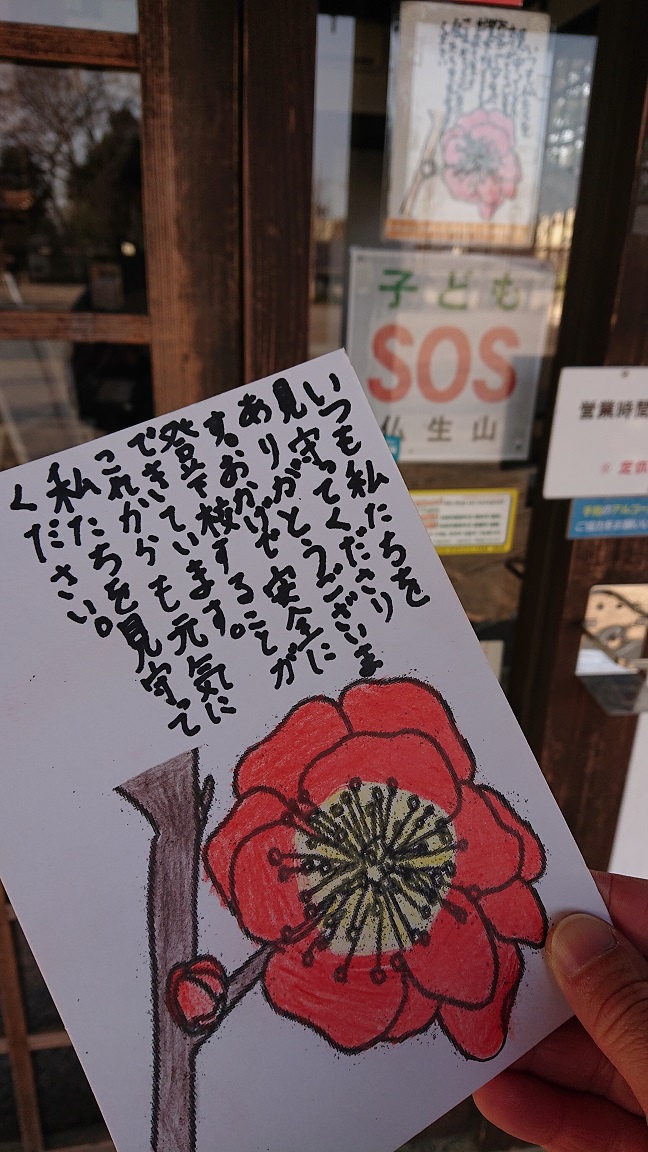 いつも私たちを
見守ってくださり
ありがとうございま
す。おかげで安全に
登下校することが
できています。
これからも元気に
私たちを見守って
ください。
子ども
SOS
仏生山
営業時間
※ 定休
手指のアルコー
ご協力をお願い